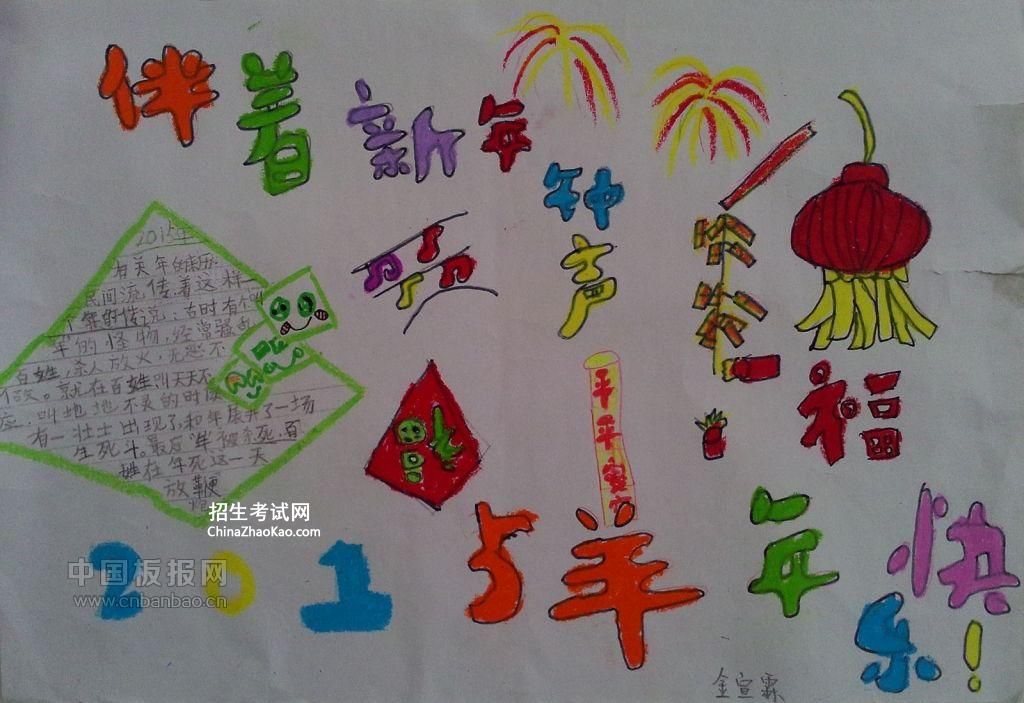 伴着新年
钟
声
2015年
有关年的来历
民间流传着这样一
个年的传说：古时有个叫
年的怪物，经常骚扰
百姓，杀人放火，无恶不
做。就在百姓叫天天不
应，叫地地不灵的时候
有一壮士出现了，和年展开了一场
生死斗。最后"年"被杀死，百
姓在年死这一天
放鞭
平平安安
福
福
2015羊年快
乐！
金宣霖
招生考试网
ChinaZhaoKao.com
中国板报网
www.cnbanbao.cn